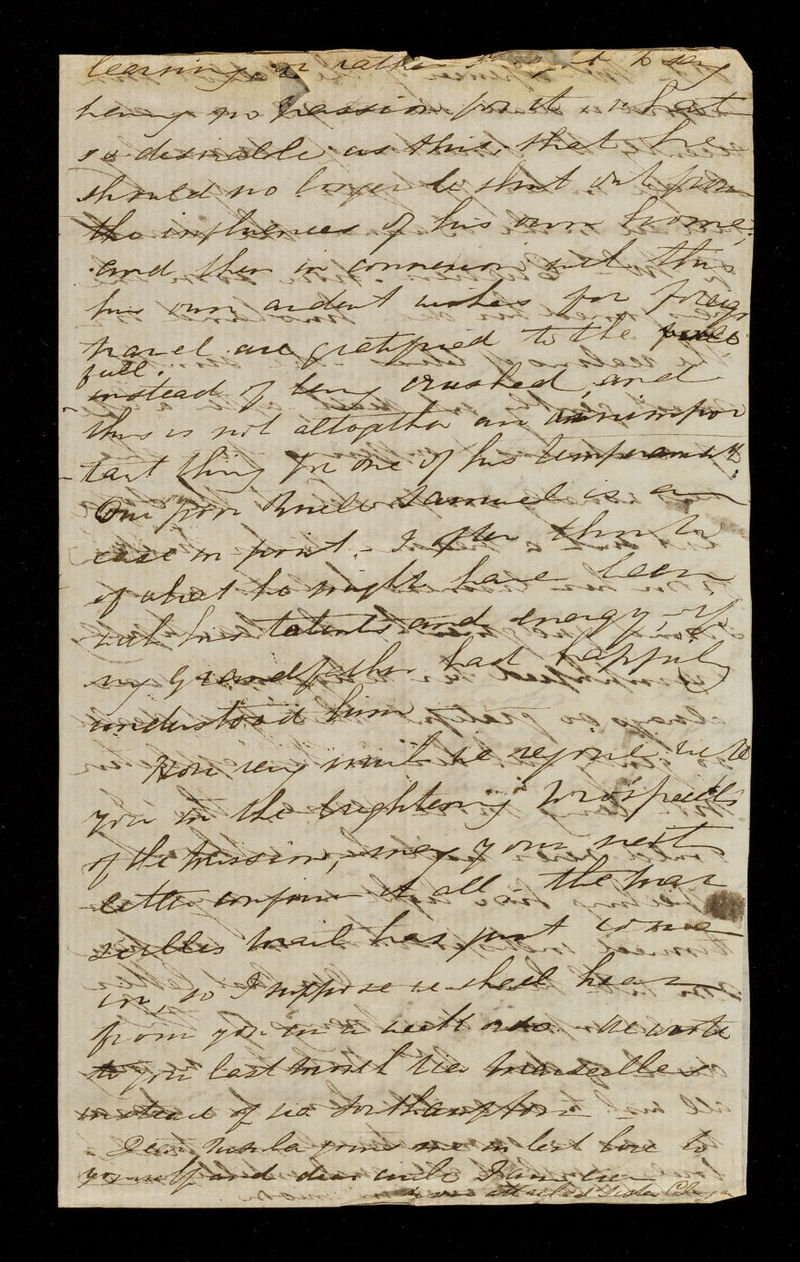 learning, or rather to say
having no passion for it, what
so desirable as this, that he
should no longer be shut out from
the influences of his own home,
and then in connexion with this
his own ardent wishes for foreign
travel are gratified to the
full.
instead of being crushed, and
this is not altogether an unimpor
tant thing for one of his temperament.
Our poor Uncle Samuel is a
case in point. - I often think
of what he might have been
with his talents and energy, if
my Grandfather had happily
understood him
How very much we rejoice with
you in the brightening prospects
of the mission, may your next
letter confirm it all. The Mar
seilles mail has just come
in, so I suppose we shall hear
from you in a week or so. We wrote
to you last month via Marseilles
instead of via Southampton
Dear joins me in best love to
yourself and dear uncle I am ever
attached